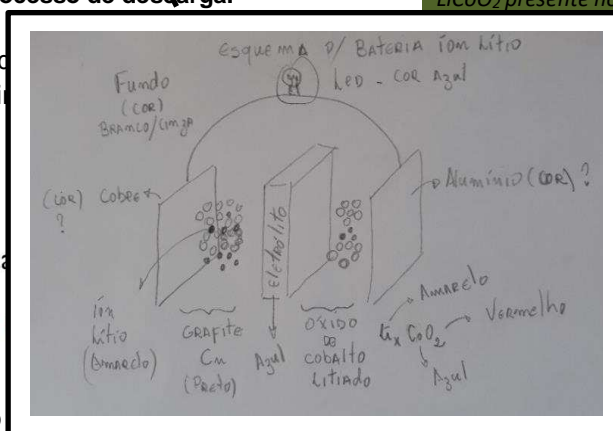 ocesso de descarga.
LiCoO₂ presente no
Esquema p/ Bateria íon Lítio
Led - cor Azul
Fundo
(cor)
Branco/Cinza
(cor) Cobre
?
Alumínio (cor) ?
Eletrólito
íon
Lítio
(Amarelo)
Grafite
Cn
(Preto)
Azul
Óxido
de
Cobalto
Litiado
Amarelo
LixCoO₂
Vermelho
Azul